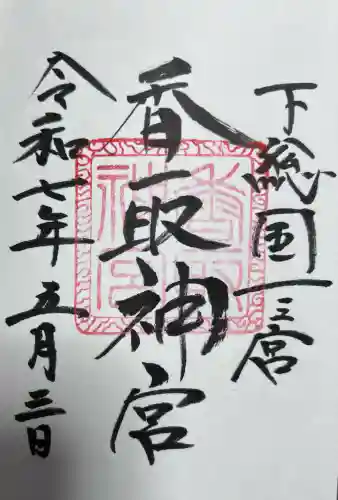 下総国一之宮
香取神宮
令和七年五月三日
香取
神宮